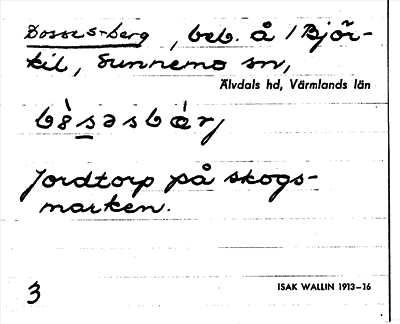 Bosses-berg, beb. å / Björ-
kil, Sunnemo sn,
Älvdals hd, Värmlands län
jordtorp på skogs-
marken.
3
ISAK WALLIN 1913–16